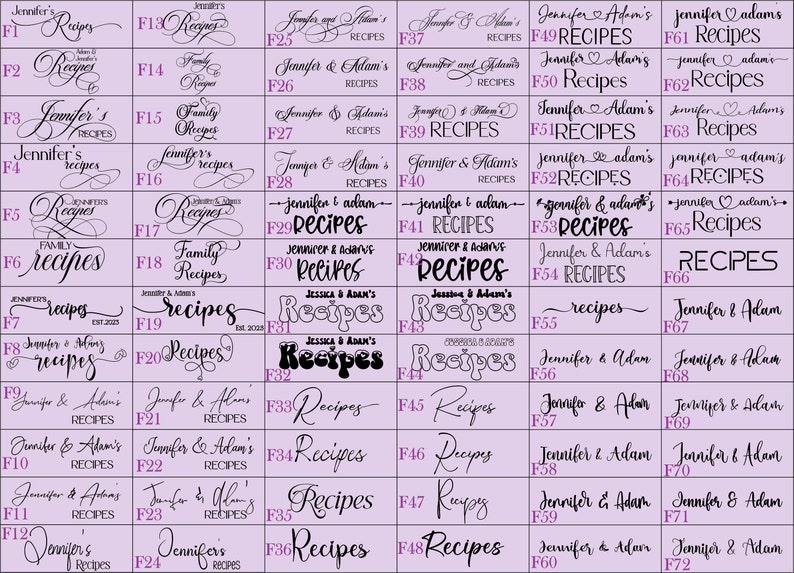 F1
Jennifer's
Recipes
F2
Adam &
Jennifer's
Recipes
F3
Jennifer's
RECIPES
F4
Jennifer's
recipes
F5
JENNIFER'S
Recipes
F6
FAMILY
recipes
F7
JENNIFER'S
recipes
EST.2023
F8
Jennifer & Adam's
recipes
F9
Jennifer & Adam's
RECIPES
F10
Jennifer & Adam's
RECIPES
F11
Jennifer & Adam's
RECIPES
F12
Jennifer's
Recipes
F13
Jennifer's
Recipes
F14
Family
Recipes
F15
Family
Recipes
F16
Jennifer's
recipes
F17
Jennifer & Adam's
Recipes
F18
Family
Recipes
F19
Jennifer & Adam's
recipes
Est. 2023
F20
Recipes
F21
Jennifer & Adam's
RECIPES
F22
Jennifer & Adam's
RECIPES
F23
Jennifer & Adam's
RECIPES
F24
Jennifer's
RECIPES
F25
Jennifer and Adam's
RECIPES
F26
Jennifer & Adam's
RECIPES
F27
Jennifer & Adam's
RECIPES
F28
Jennifer & Adam's
RECIPES
F29
jennifer & adam
RECIPES
F30
Jennifer & Adam's
RECIPES
F31
Jessica & Adam's
Recipes
F32
Jessica & Adam's
Recipes
F33
Recipes
F34
Recipes
F35
Recipes
F36
Recipes
F37
Jennifer & Adam's
RECIPES
F38
Jennifer and Adam's
RECIPES
F39
Jennifer & Adam's
RECIPES
F40
Jennifer & Adam's
RECIPES
F41
jennifer & adam
RECIPES
F42
Jennifer & Adam's
RECIPES
F43
Jessica & Adam's
Recipes
F44
JESSICA & ADAM'S
Recipes
F45
Recipes
F46
Recipes
F47
Recipes
F48
Recipes
F49
Jennifer Adam's
RECIPES
F50
Jennifer Adam's
Recipes
F51
Jennifer Adam's
RECIPES
F52
jennifer adam's
RECIPES
F53
jennifer & adam's
RECIPES
F54
Jennifer & Adam's
RECIPES
F55
recipes
F56
Jennifer & Adam
F57
Jennifer & Adam
F58
Jennifer & Adam
F59
Jennifer & Adam
F60
Jennifer & Adam
F61
jennifer adam's
Recipes
F62
jennifer adam's
RECIPES
F63
Jennifer Adam's
Recipes
F64
jennifer adam's
RECIPES
F65
jennifer adam's
Recipes
F66
RECIPES
F67
Jennifer & Adam
F68
Jennifer & Adam
F69
Jennifer & Adam
F70
Jennifer & Adam
F71
Jennifer & Adam
F72
Jennifer & Adam